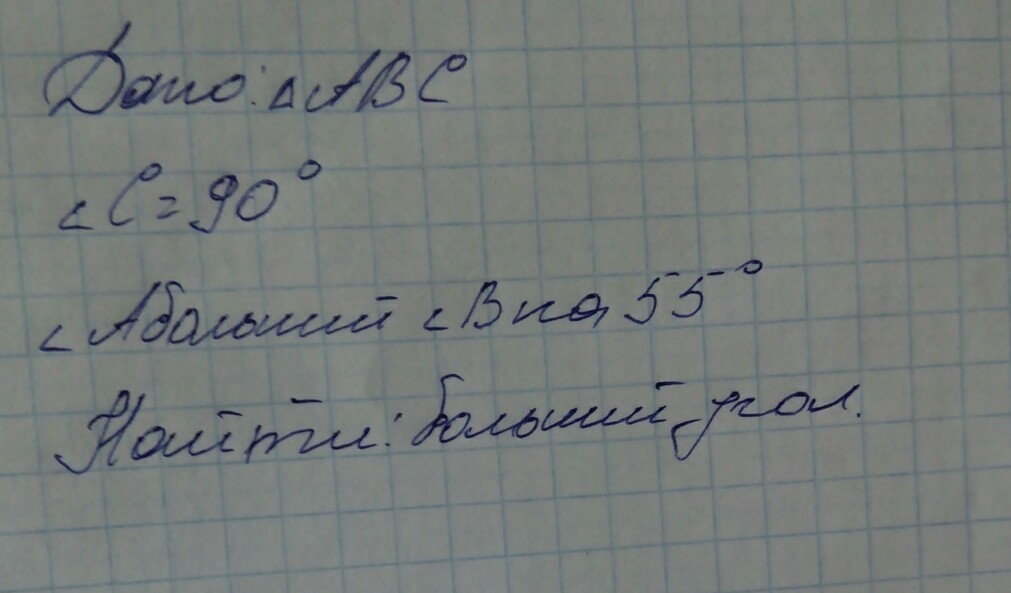 Дано: △ABC
∠C=90°
∠A больший ∠B на 55°
Найти: больший угол.